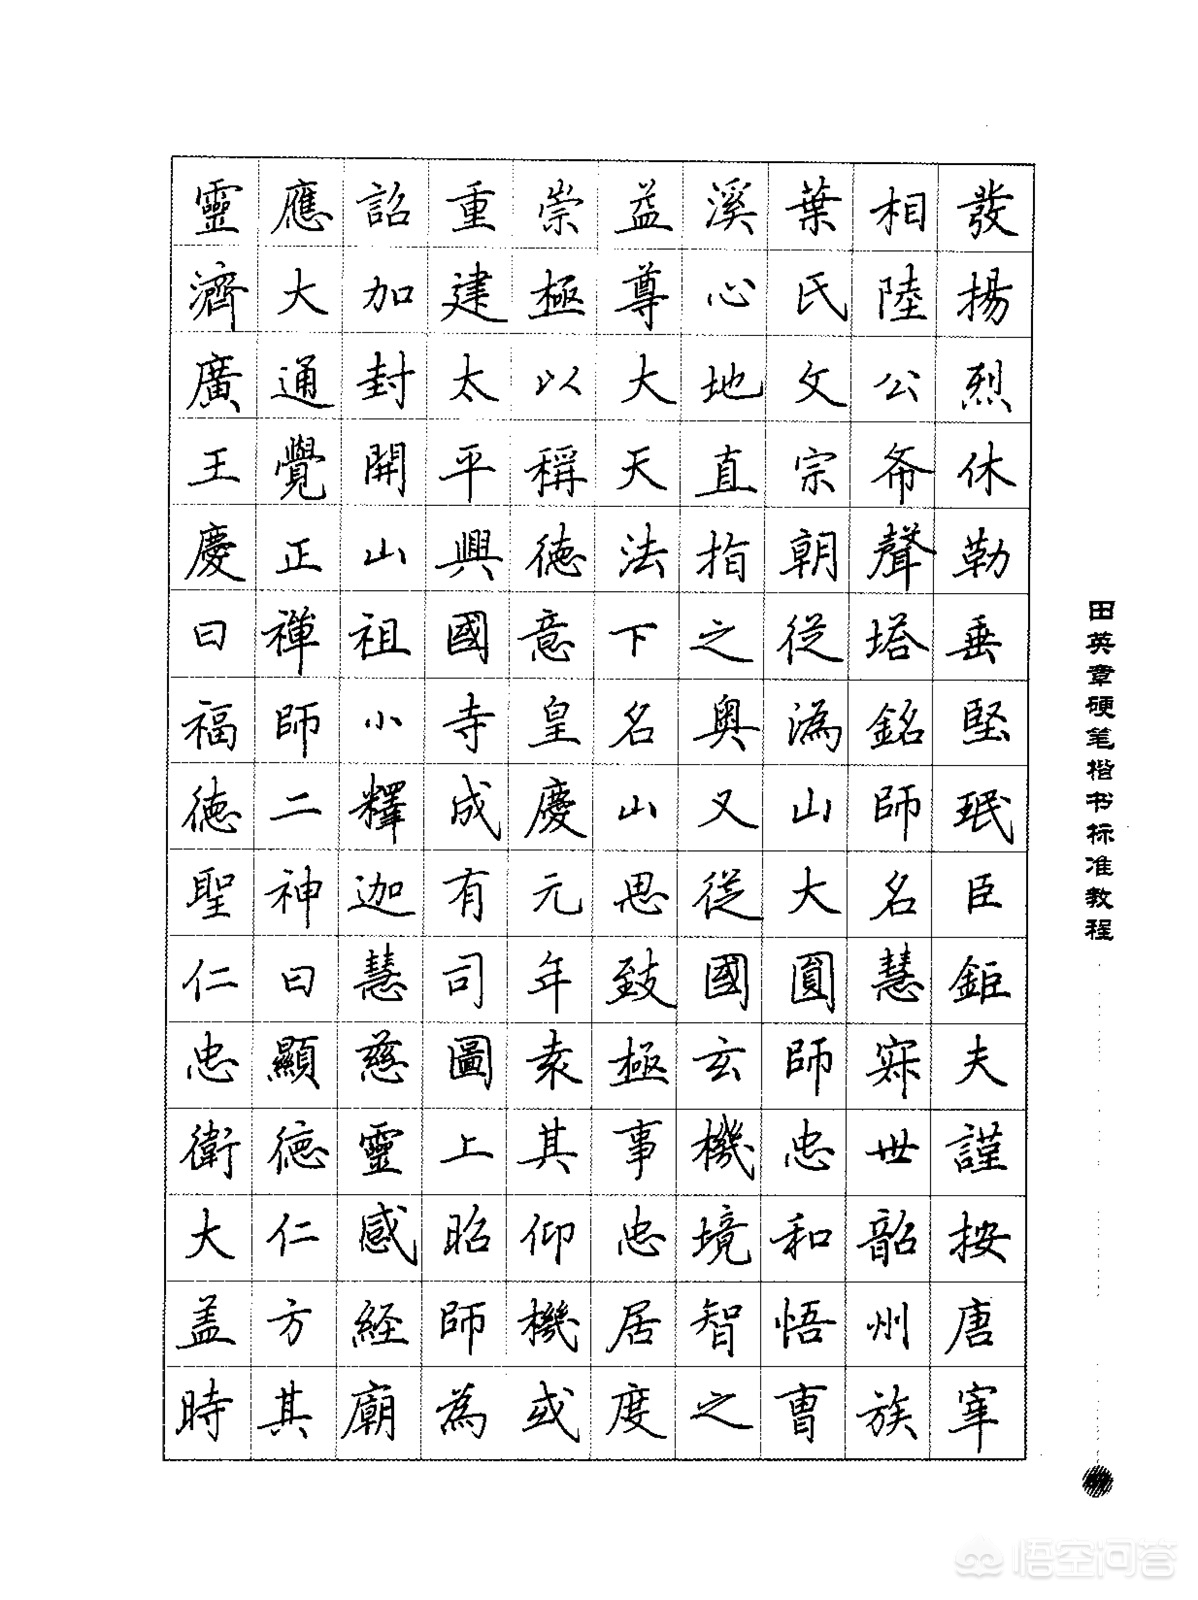 發揚烈休勒垂堅珉臣鉅夫謹按唐宰
相陸公希聲塔銘師名慧寂世韶州族
葉氏文宗朝從溈山大圓師忠和悟曹
溪心地直指之奧又從國玄機境智之
益尊大天法下名山思致極事忠居度
崇極以稱德意皇慶元年袁其仰機或
重建太平興國寺成有司圖上昭師為
詔加封開山祖小釋迦慧慈靈感經廟
應大通覺正禪師二神曰顯德仁方其
靈濟廣王慶曰福德聖仁忠衛大盖時
田英章硬笔楷书标准教程
悟空问答